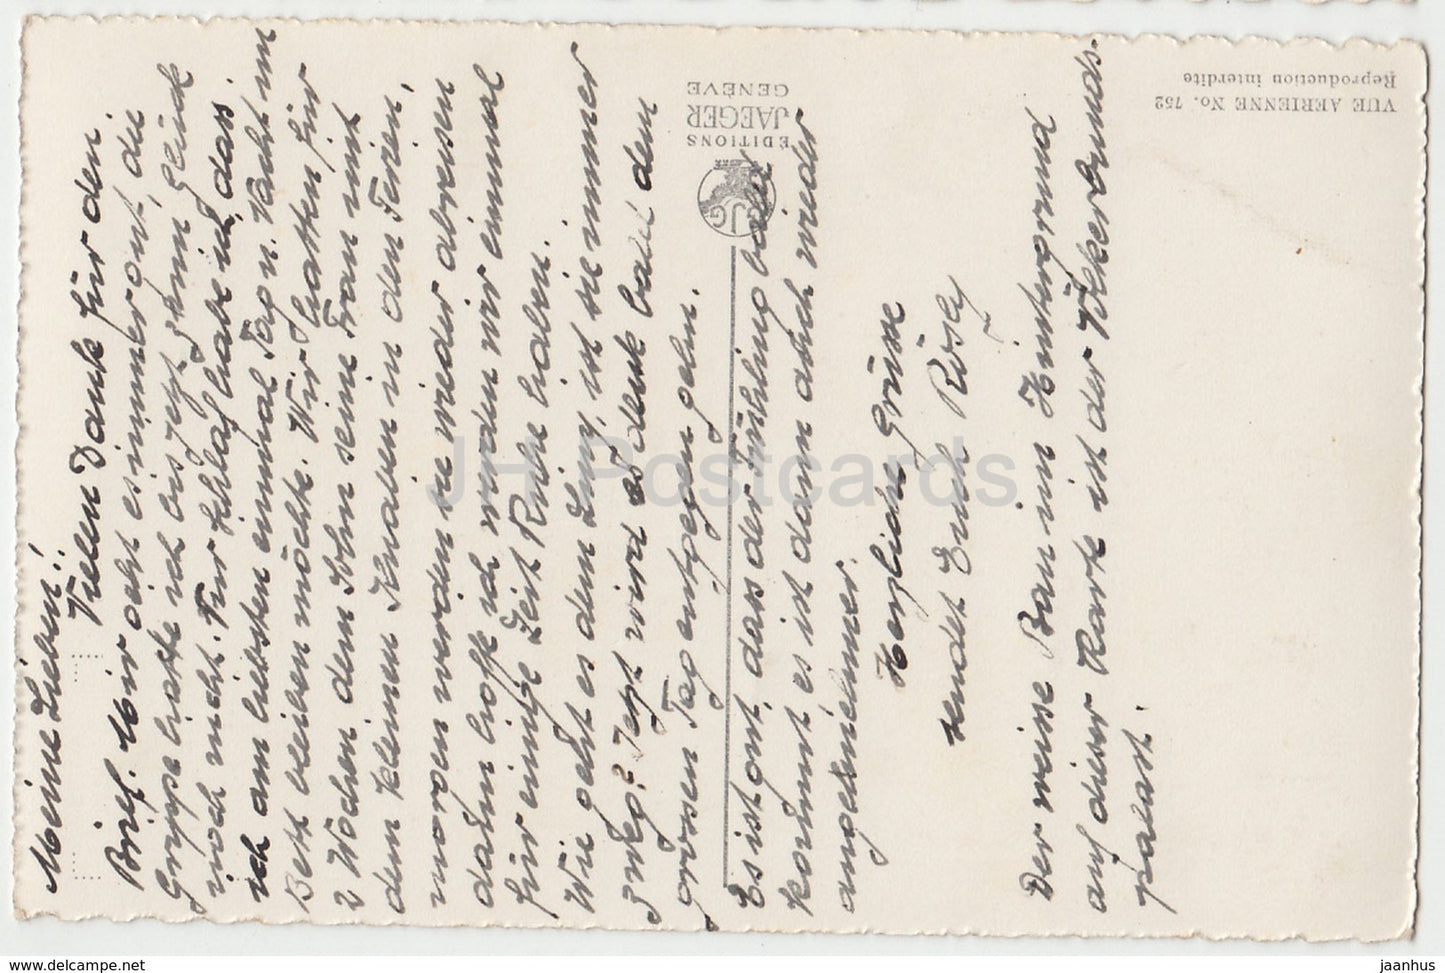 Meine Lieben!
Vielen Dank für den
Brief. Mir geht es immer gut, die
Grippe hatte ich bis jetzt zum Glück
noch nicht. Nur Schlaf habe ich, dass
ich am liebsten einmal Tag u. Nacht im
Bett bleiben möchte. Wir hatten für
2 Wochen den Sohn seine Frau mit
dem kleinen Knaben in den Ferien,
morgen werden sie wieder abreisen
dann hoffe ich werden wir einmal
für einige Zeit Ruhe haben.
Wie geht es dem, ist sie immer
zweg? Jetzt wird es denk bald dem
grossen Tag entgegen gehn.
Es ist gut, dass der Frühling bald
kommt, es ist dann auch wieder
angenehmer.
Herzliche Grüsse
sendet Euch Rösly
Der weisse Bau im Hintergrund
auf dieser Karte ist der Völkerbunds-
palast.
EDITIONS
JAEGER
GENÈVE
JG
VUE AERIENNE No. 752
Reproduction interdite
JH Postcards
www.delcampe.net
jaanhus